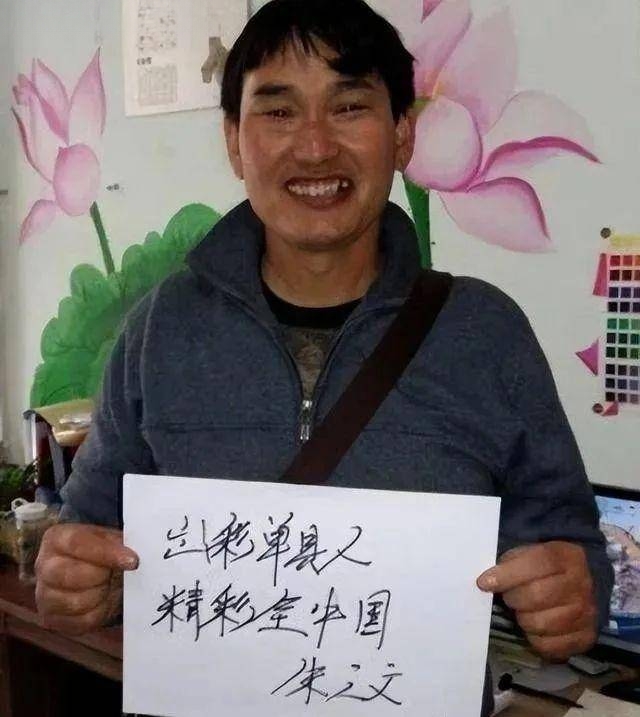 出彩单县人
精彩全中国
朱之文